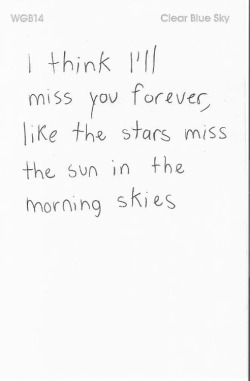 WGB14 Clear Blue Sky
I think I'll
miss you forever,
like the stars miss
the sun in the
morning skies